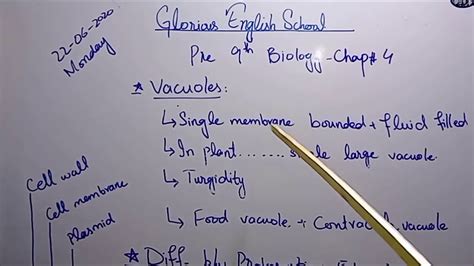 22-06-2020
Monday
Glorias English School
Pre 9th Biology-Chap# 4
* Vacuoles:
↳ Single membrane bounded + fluid filled
↳ In plant ........ large vacuole.
↳ Turgidity
↳ Food vacuole + vacuole
Cell wall
Cell membrane
Plasmid
* Diff. b/w